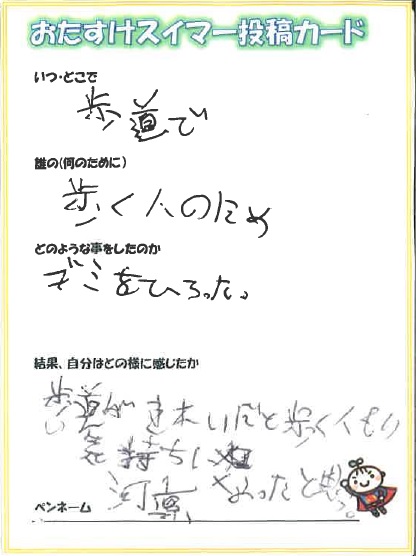 おたすけスイマー投稿カード
いつ・どこで
歩道で
誰の(何のために)
歩く人のため
どのような事をしたのか
ゴミをひろった。
結果、自分はどの様に感じたか
歩道がきれいだと歩く人もい
い気持ちに
なったと思う。
ペンネーム